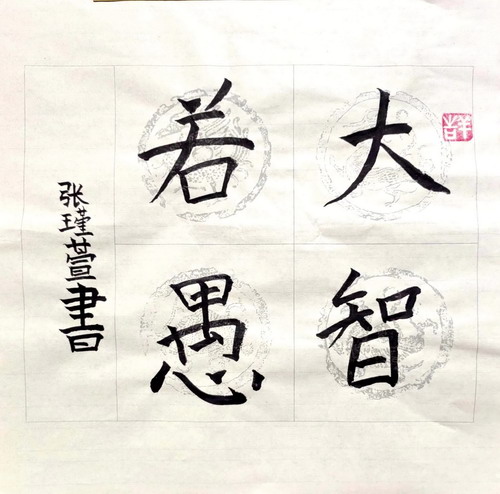 大智
若愚
张瑾萱書
吉羊